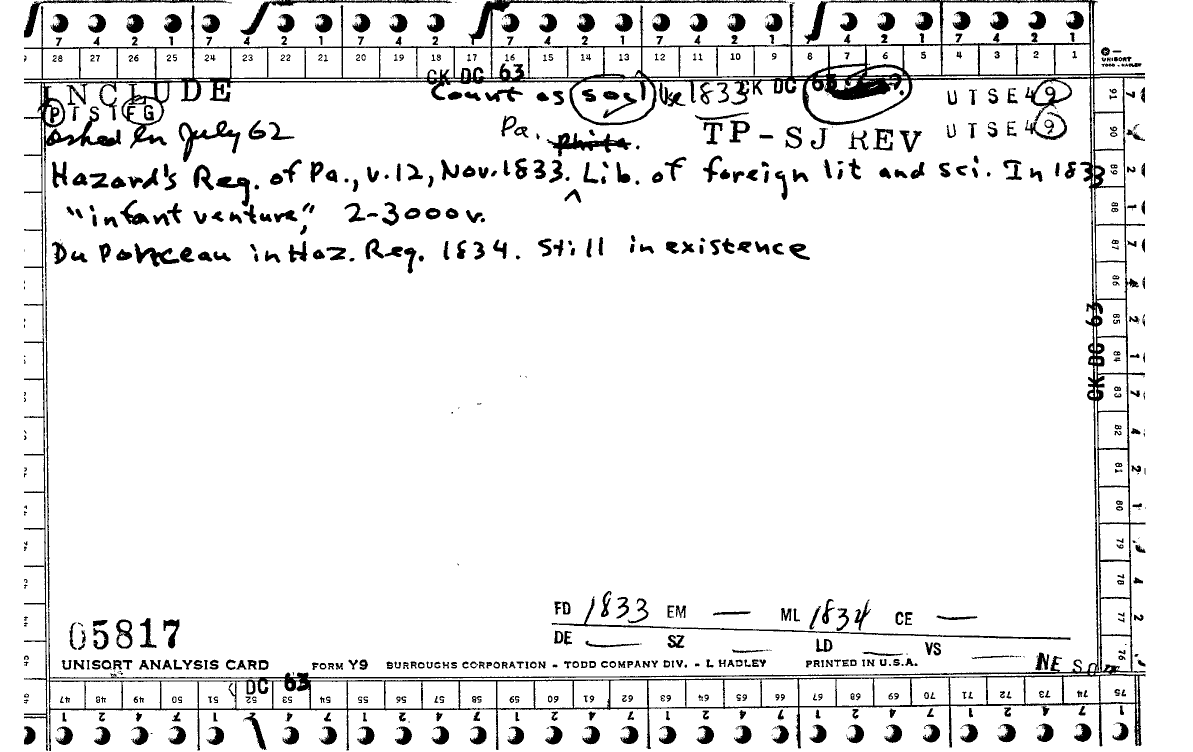 7 4 2 1 7 4 2 1 7 4 2 1 7 4 2 1 7 4 2 1 7 4 2 1 7 4 2 1
28 27 26 25 24 23 22 21 20 19 18 17 16 15 14 13 12 11 10 9 8 7 6 5 4 3 2 1
UNISORT
TODD - HADLEY
CK DC 63
INCLUDE
Count as soc'l Use 1833 CK DC 63
UTSE49
P TST FG
asked ln July 62
Pa. Phila.
TP-SJ REV
UTSE49
Hazard's Reg. of Pa., v.12, Nov. 1833. ^ Lib. of foreign lit and sci. In 1833
"infant venture", 2-3000v.
Du Ponceau in Haz. Reg. 1834. Still in existence
91 90 89 88 87 86 85 84 83 82 81 80 79 78 77 76
CK DC 63
FD 1833 EM — ML 1834 CE —
DE — SZ — LD — VS
05817
UNISORT ANALYSIS CARD FORM Y9 BURROUGHS CORPORATION - TODD COMPANY DIV. - L HADLEY PRINTED IN U.S.A.
NE
DC 63
47 48 49 50 51 52 53 54 55 56 57 58 59 60 61 62 63 64 65 66 67 68 69 70 71 72 73 74 75
1 2 4 7 1 2 4 7 1 2 4 7 1 2 4 7 1 2 4 7 1 2 4 7 1 2 4 7 1